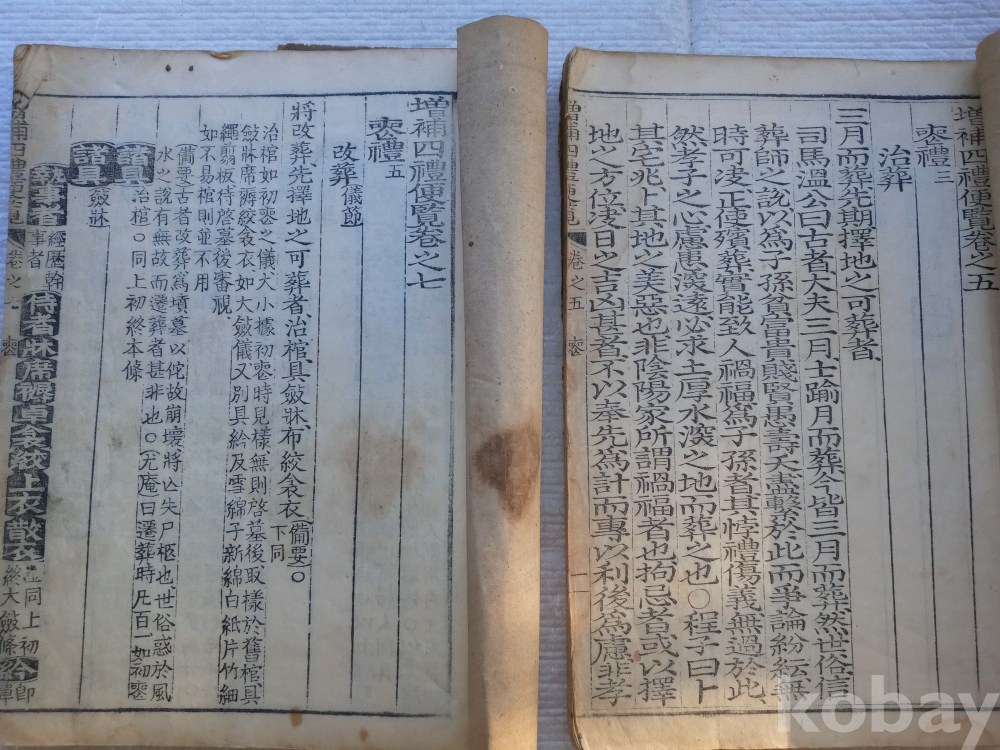 增補四禮便覽卷之五
喪禮三
治葬
三月而葬先期擇地之可葬者
司馬溫公曰古者大夫三月士踰月而葬今皆三月而葬然世俗信
葬師之說以爲子孫貧富貴賤賢愚壽夭盡繫於此而爭論紛紜無
時可決正使殯葬實能致人禍福爲子孫者其悖禮傷義無過於此
然孝子之心慮患深遠必求土厚水深之地而葬之也〇程子曰卜
其宅兆卜其地之美惡也非陰陽家所謂禍福者也拘忌者或以擇
地之方位決日之吉凶甚者不以奉先爲計而專以利後爲慮非孝
增補四禮便覽 卷之五 喪 一
增補四禮便覽卷之七
喪禮五
改葬 儀節
將改葬先擇地之可葬者治棺具斂牀布絞衾衣 備要〇
下同
治棺如初喪之儀大小據初喪時見樣無則啓墓後取樣於舊棺具
斂牀席褥絞衾衣如大斂儀又別具紟及雪綿子新綿白紙片竹細
繩翣板待啓墓後審視
如不易棺則並不用
備要古者改葬爲墳墓以佗故崩壞將亾失尸柩也世俗惑於風
水之說有無故而遷葬者甚非也〇尤庵曰遷葬時凡百一如初喪
諸具 治棺〇同上初終本條
諸具 斂牀
執事者 經歷幹
事者 侍者牀席褥 衾絞上衣散衣 並同上初
終大斂條 紟 卽
單
增補四禮便覽 卷之 喪
kobay